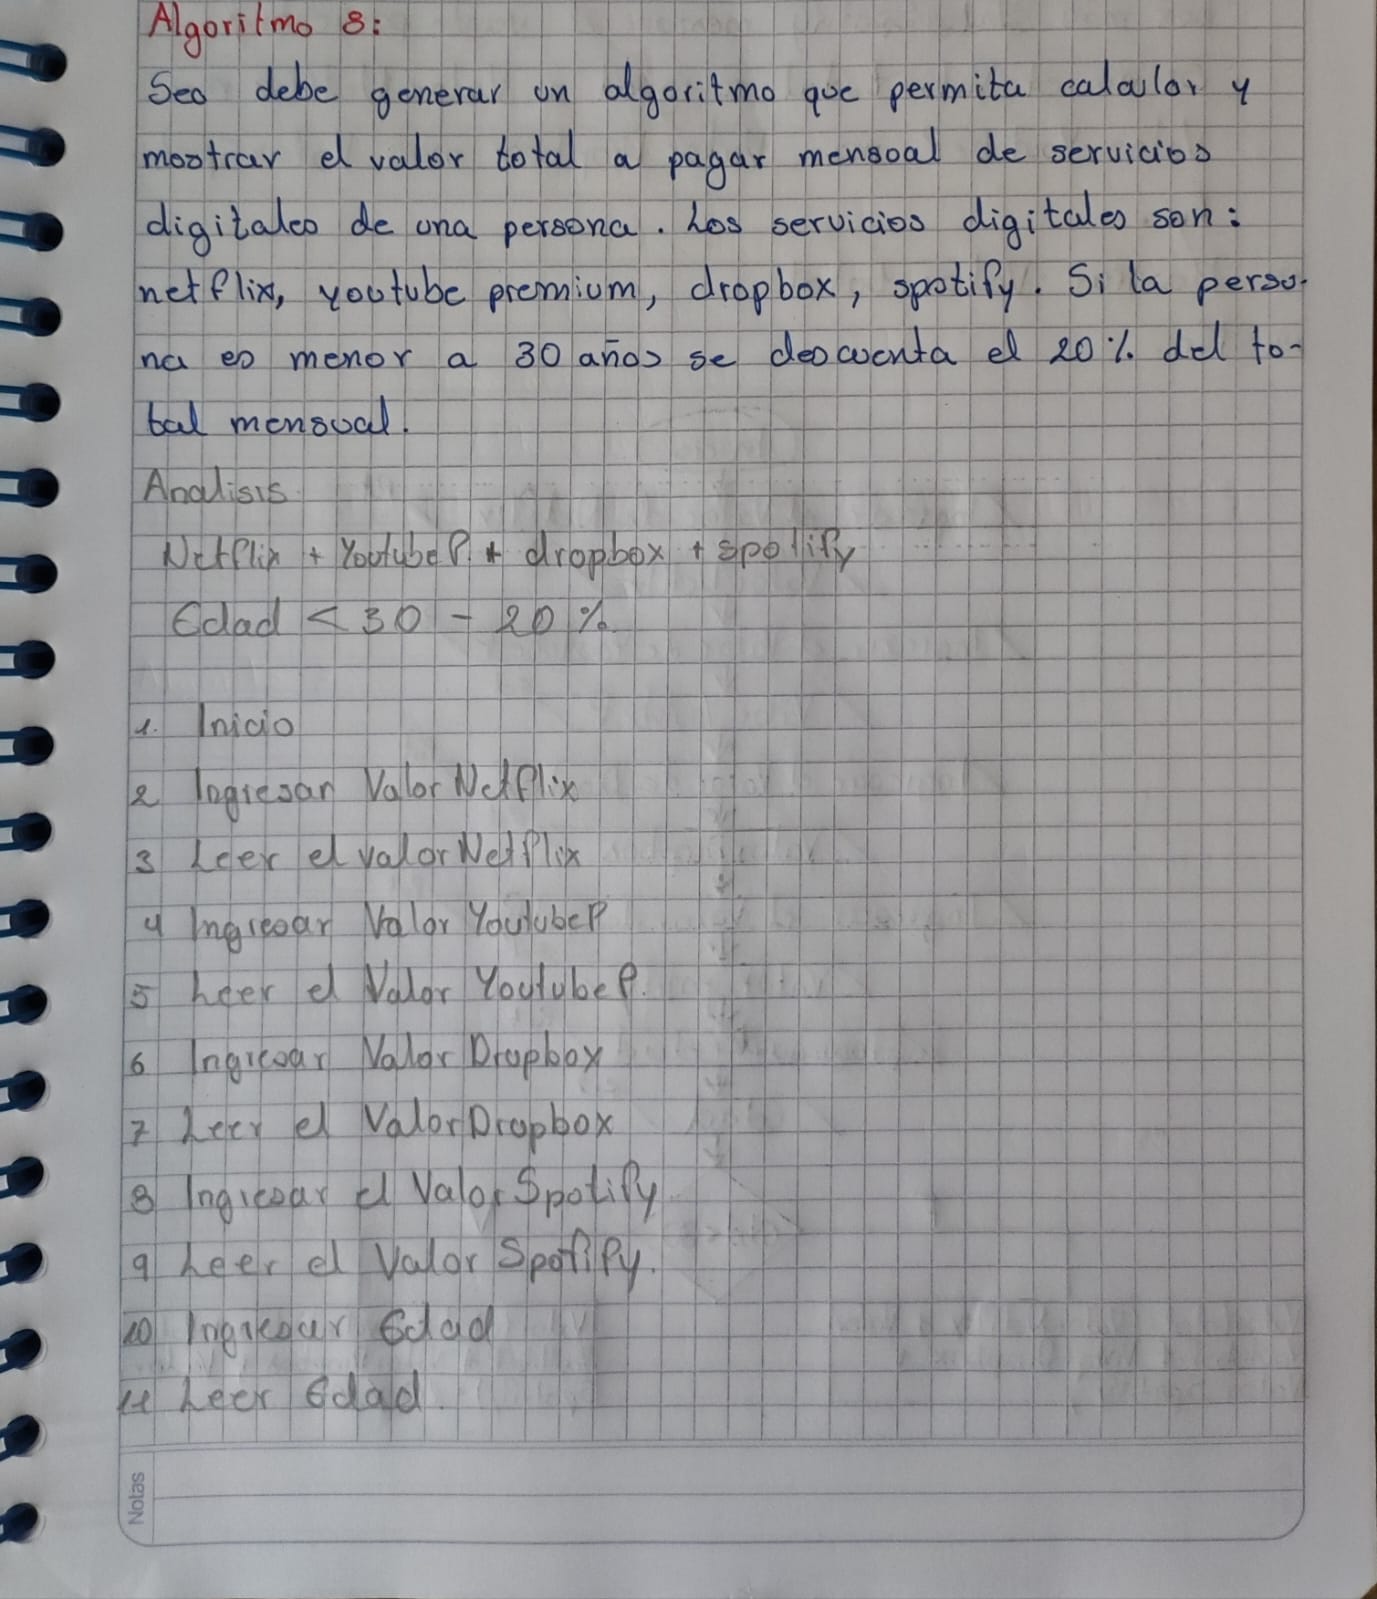 Algoritmo 8:
Seo debe generar un algoritmo que permita calcular y
mostrar el valor total a pagar mensual de servicios
digitales de una persona. Los servicios digitales son:
netflix, youtube premium, dropbox, spotify. Si la perso-
na es menor a 30 años se descuenta el 20% del to-
tal mensual.
Analisis
Netflix + YoutubeP. + dropbox + spotify
Edad < 30 - 20%
1. Inicio
2 Ingresar Valor Netflix
3 Leer el valor Netflix
4 Ingresar Valor YoutubeP
5 Leer el Valor YoutubeP.
6 Ingresar Valor Dropbox
7 Leer el Valor Dropbox
8 Ingresar el Valor Spotify
9 Leer el Valor Spotify.
10 Ingresar Edad
11 Leer Edad.
Notas